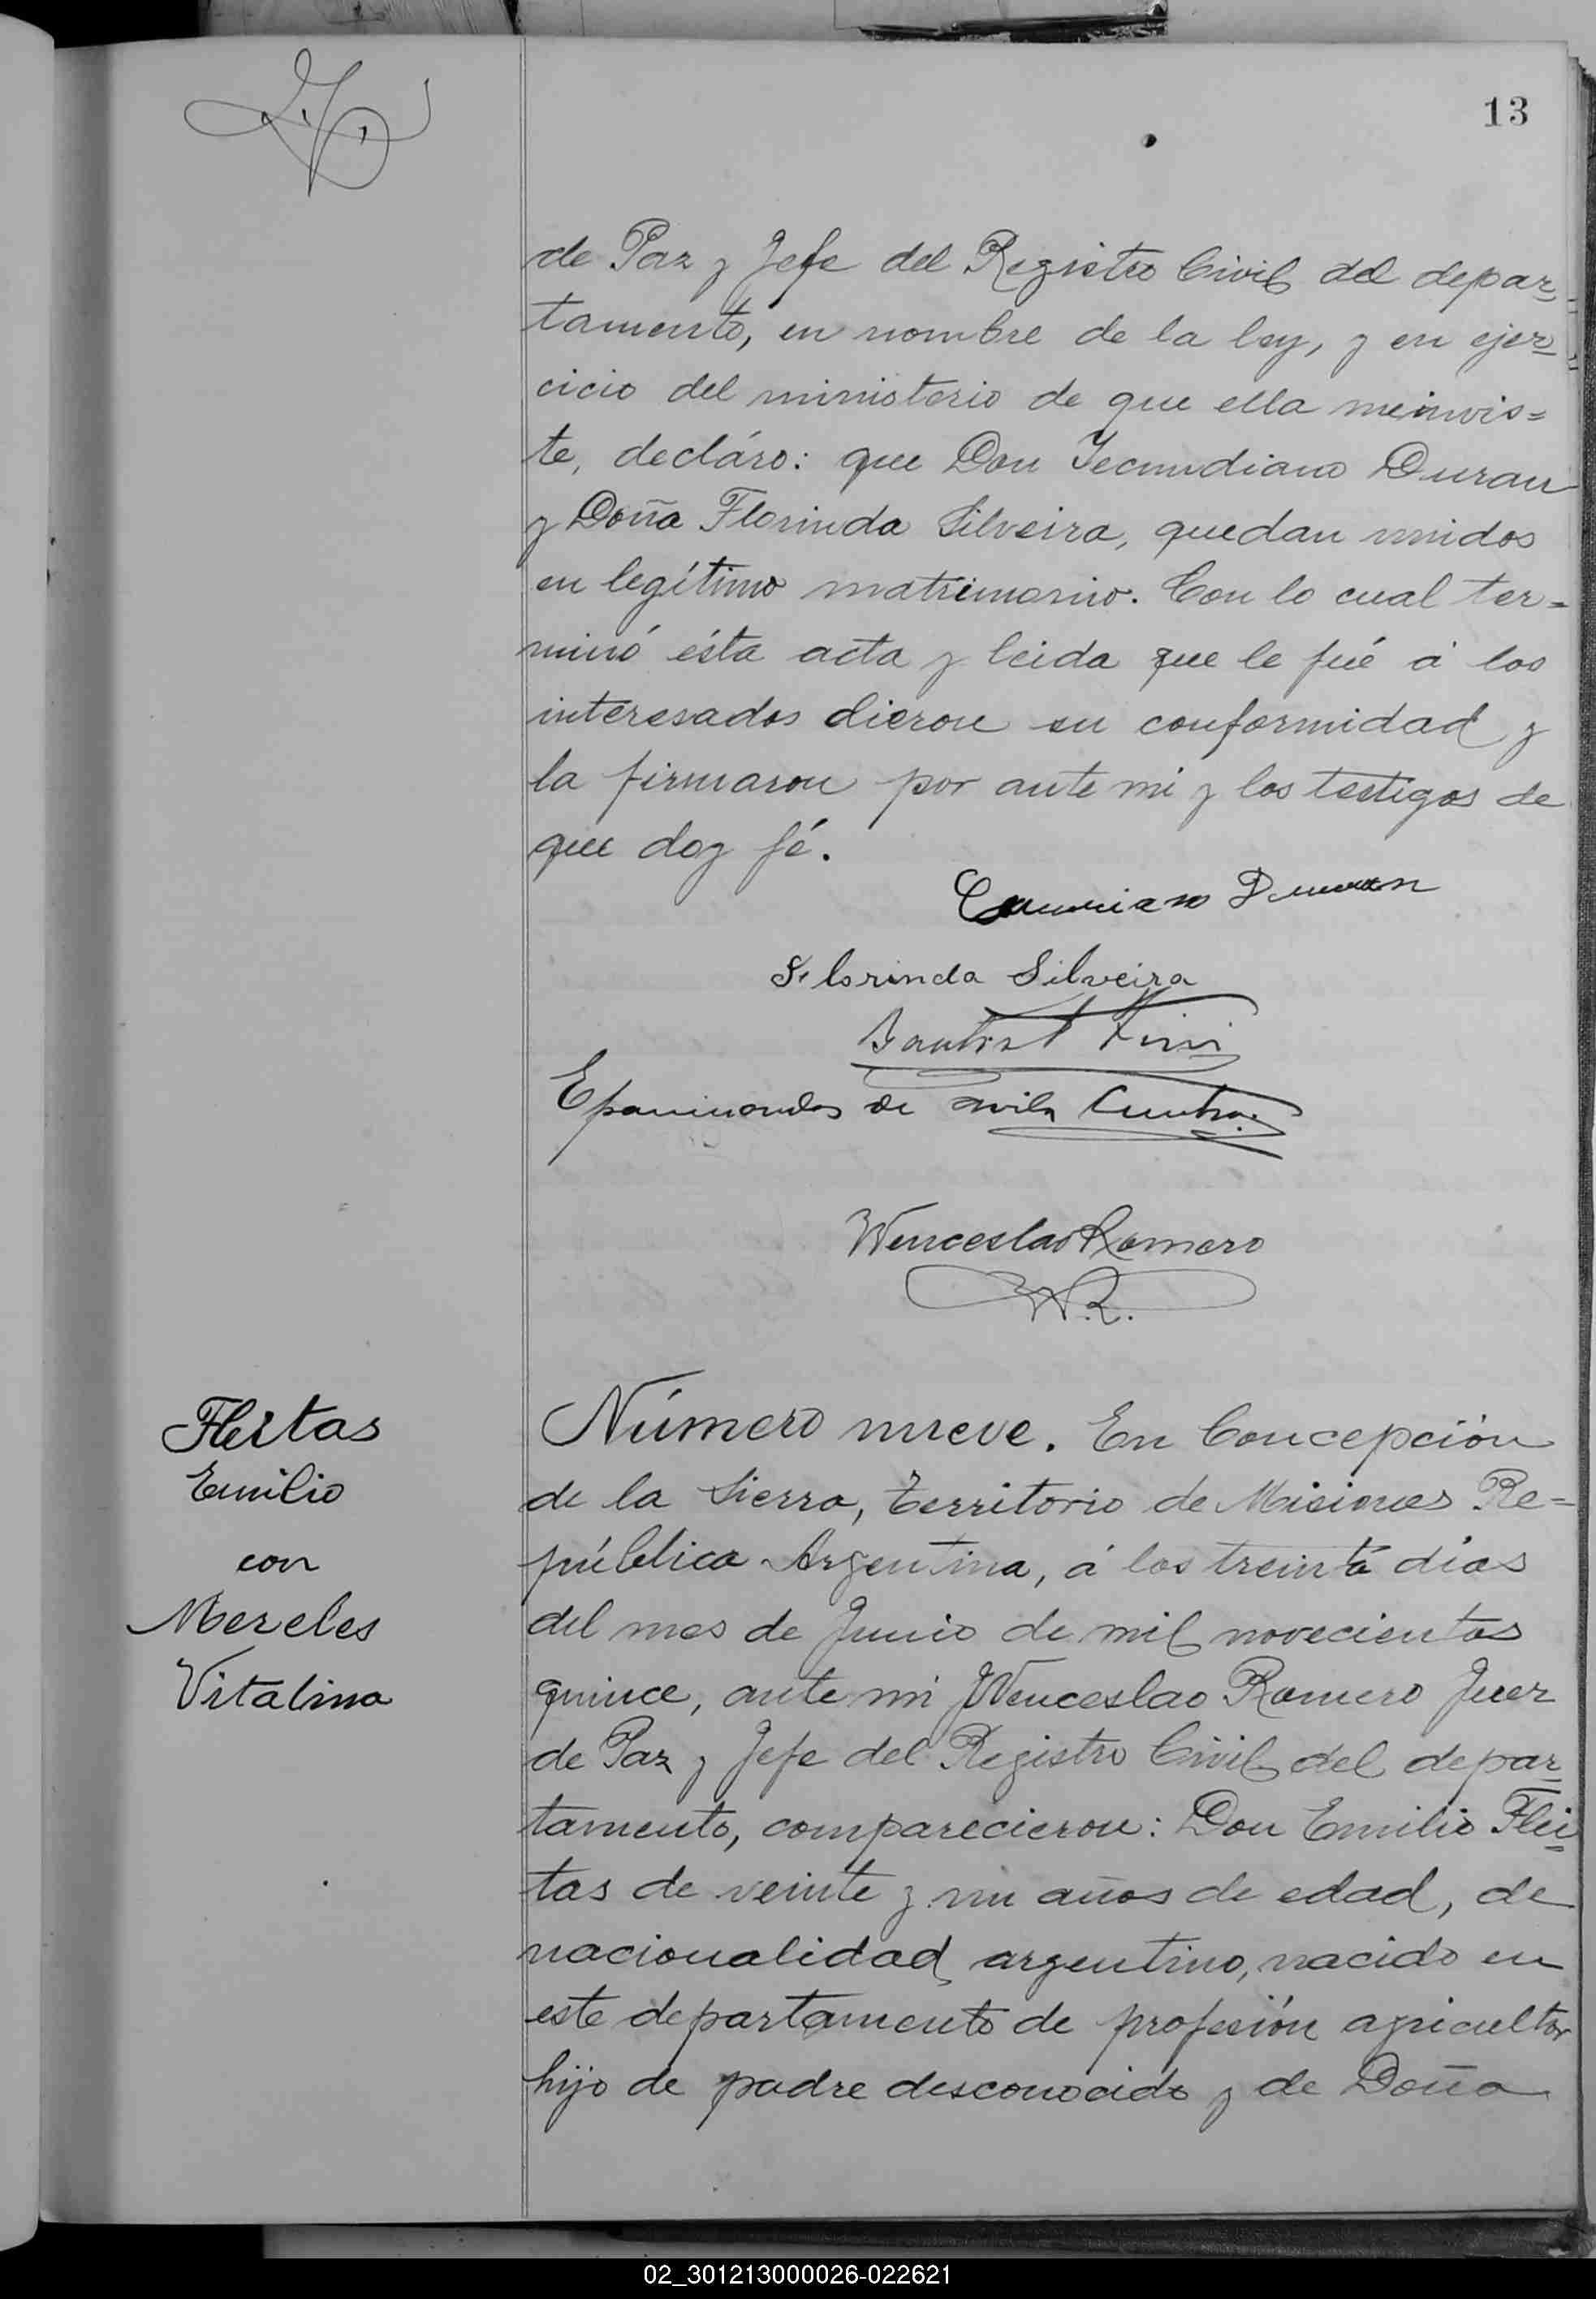 13
de Paz y Jefe del Registro Civil del depar=
tamento, en nombre de la ley, y en ejer=
cicio del ministerio de que ella me invis=
te, decláro: que Don Secundiano Duran
y Doña Florinda Silveira, quedan unidos
en legítimo matrimonio. Con lo cual ter=
minó ésta acta y leida que le fué á los
interesados dieron su conformidad y
la firmaron por ante mi y los testigos de
que doy fé.
Duran
Florinda Silveira
Epaminondas de Avila Cunha
Wenceslao Romero
W.R.
Fleitas
Emilio
con
Mereles
Vitalina
Número nueve. En Concepción
de la Sierra, territorio de Misiones Re=
pública Argentina, á los treinta días
del mes de Junio de mil novecientos
quince, ante mi Wenceslao Romero Juez
de Paz y Jefe del Registro Civil del depar=
tamento, comparecieron: Don Emilio Flei=
tas de veinte y un años de edad, de
nacionalidad argentino, nacido en
este departamento de profesión agricultor
hijo de padre desconocido y de Doña
02_301213000026-022621